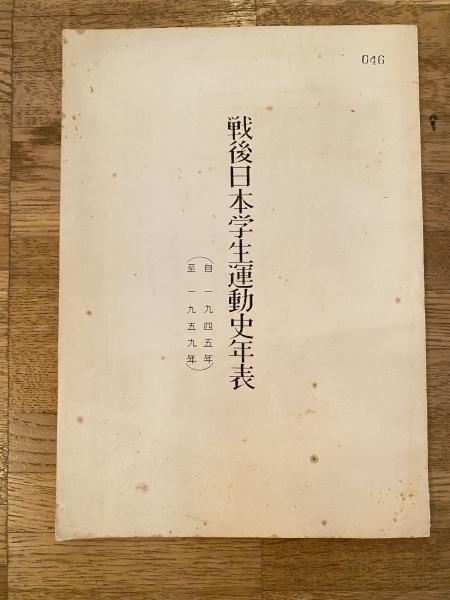 046
戦後日本学生運動史年表
(自 一九四五年
至 一九五九年)